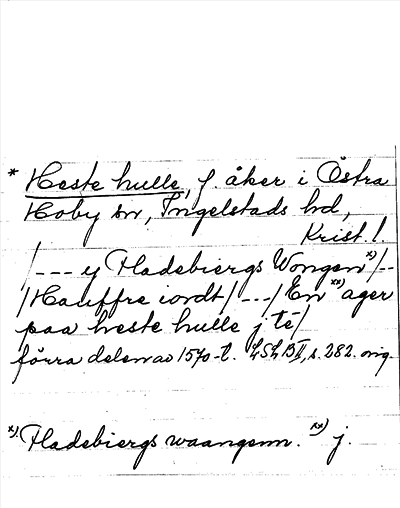 * Heste hulle, f. åker i Östra
Hoby sn, Ingelstads hd,
Krist. l.
/--- y Fladebiergs Wongen x)/--
/Hauffre iordt/---/En xx) ager
paa heste hulle j te/
förra delen av 1570-t. LSLB II, s. 282. orig.
x) Fladebiergs waangenn. xx) j.